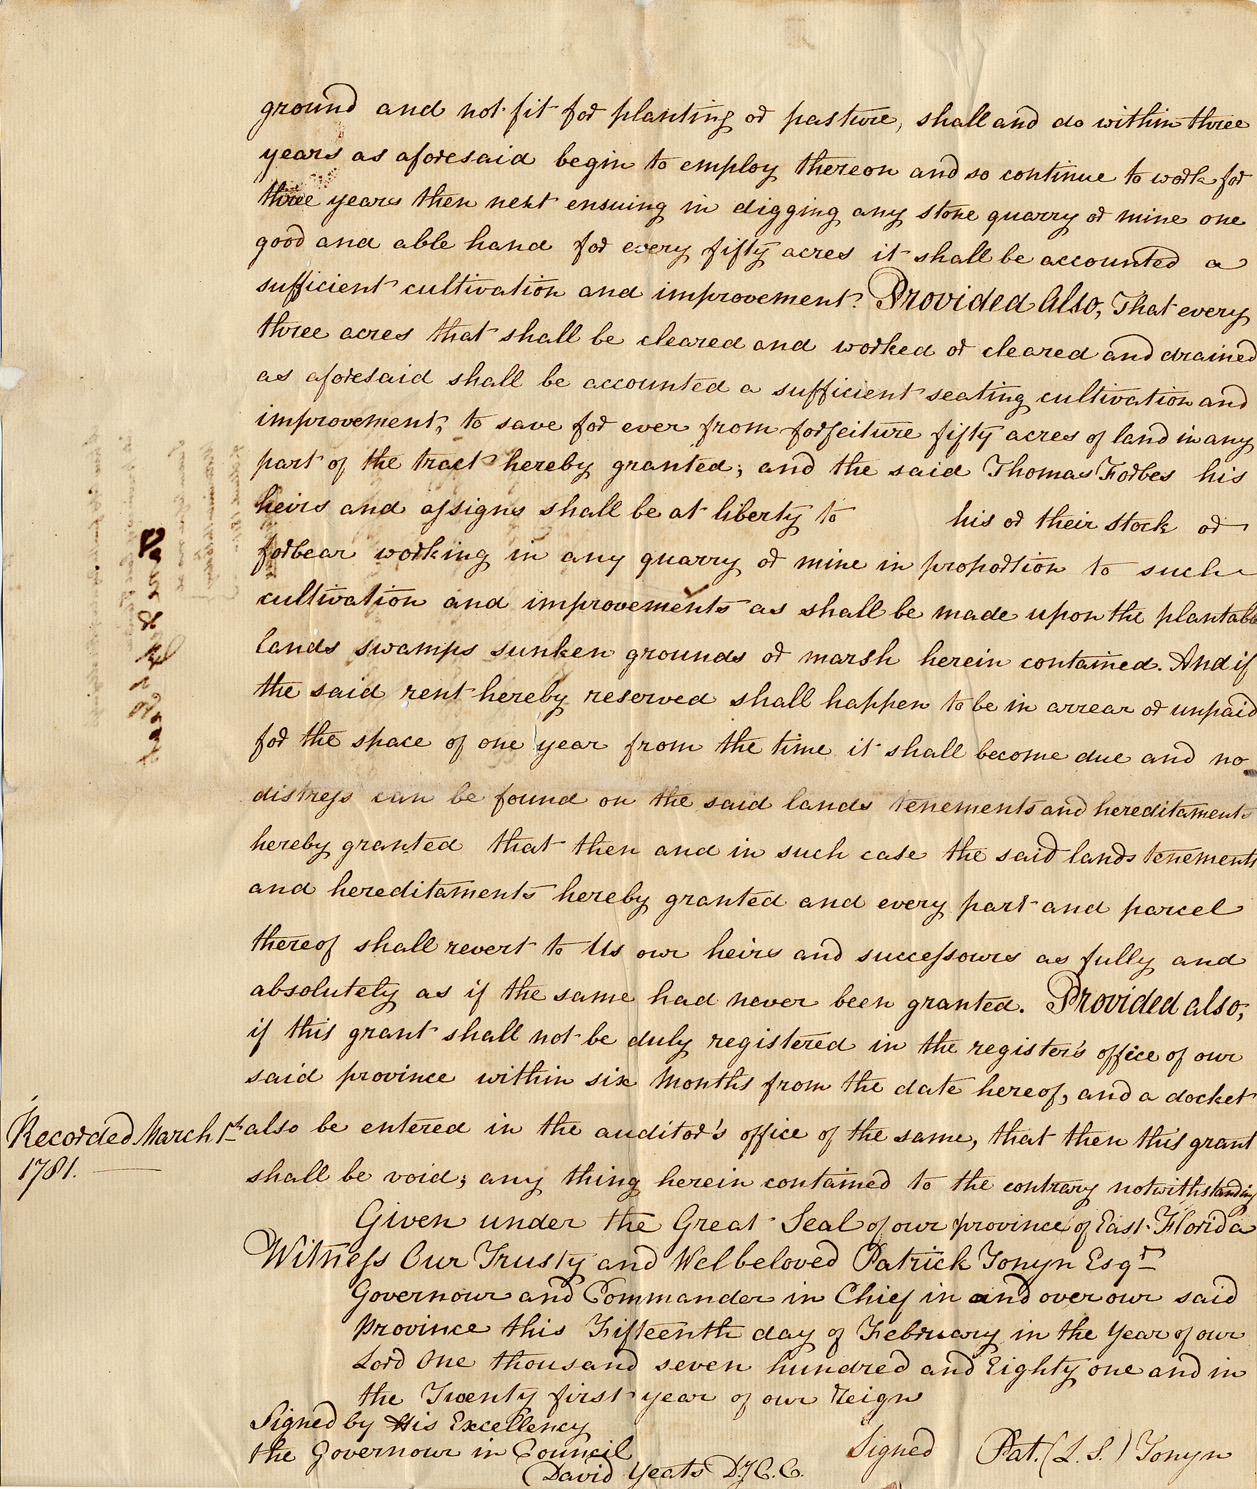 ground and not fit for planting or pasture, shall and do within three
years as aforesaid begin to employ thereon and so continue to work for
three years then next ensuing in digging any stone quarry or mine one
good and able hand for every fifty acres it shall be accounted a
sufficient cultivation and improvement. Provided Also, That every
three acres that shall be cleared and worked or cleared and drained
as aforesaid shall be accounted a sufficient seating cultivation and
improvement, to save for ever from forfeiture fifty acres of land in any
part of the tract hereby granted; and the said Thomas Forbes his
heirs and assigns shall be at liberty to his or their stock or
forbear working in any quarry or mine in proportion to such
cultivation and improvements as shall be made upon the plantable
lands swamps sunken grounds or marsh herein contained. And if
the said rent hereby reserved shall happen to be in arrear or unpaid
for the space of one year from the time it shall become due and no
distress can be found on the said lands tenements and hereditaments
hereby granted that then and in such case the said lands tenements
and hereditaments hereby granted and every part and parcel
thereof shall revert to Us our heirs and successours as fully and
absolutely as if the same had never been granted. Provided also,
if this grant shall not be duly registered in the register's office of our
said province within six Months from the date hereof, and a docket
also be entered in the auditor's office of the same, that then this grant
shall be void; any thing herein contained to the contrary notwithstanding
Recorded March 1st
1781.
Given under the Great Seal of our province of East Florida
Witness Our Trusty and Welbeloved Patrick Tonyn Esqr
Governour and Commander in Chief in and over our said
Province this Fifteenth day of February in the Year of our
Lord One thousand seven hundred and Eighty one and in
the Twenty first year of our Reign
Signed by His Excellency
the Governour in Council
David Yeats D.y C.C.
Signed Pat. (L.S.) Tonyn